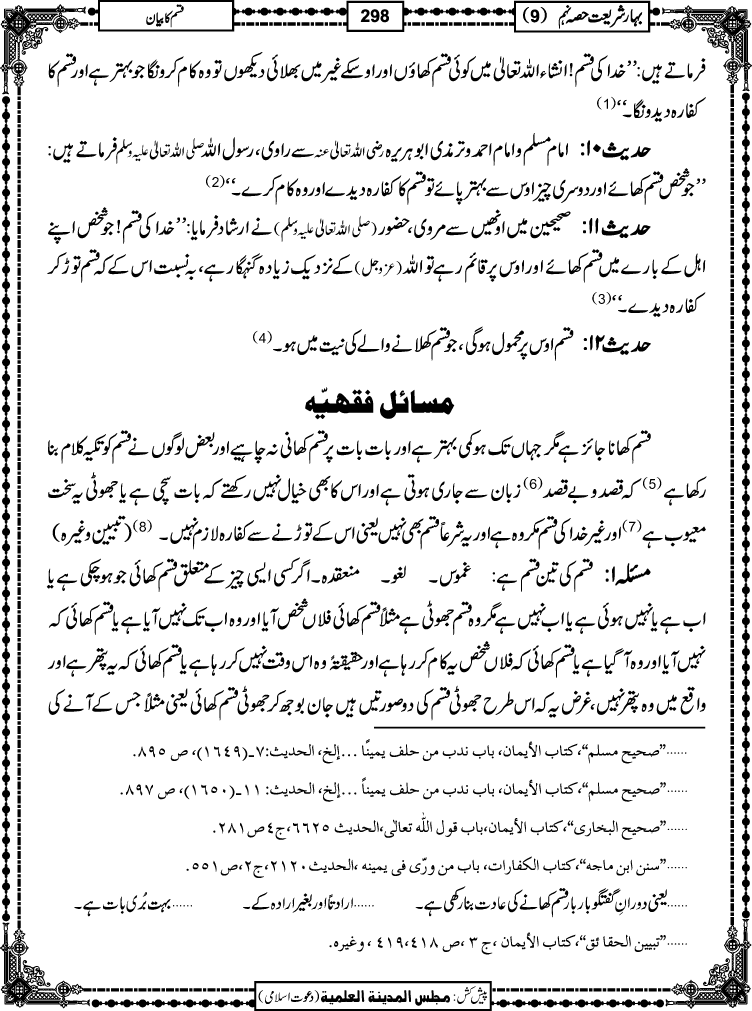 بہار شریعت حصہ نہم (9)
298
قسم کا بیان
فرماتے ہیں: ’’خدا کی قسم! انشاء اللہ تعالیٰ میں کوئی قسم کھاؤں اور اوسکے غیر میں بھلائی دیکھوں تو وہ کام کرونگا جو بہتر ہے اور قسم کا
کفارہ دیدونگا۔‘‘(1)
حدیث ۱۰: امام مسلم و امام احمد و ترمذی ابو ہریرہ رضی اللہ تعالیٰ عنہ سے راوی، رسول اللہ صلی اللہ تعالیٰ علیہ وسلم فرماتے ہیں:
’’جو شخص قسم کھائے اور دوسری چیز اوس سے بہتر پائے تو قسم کا کفارہ دیدے اور وہ کام کرے۔‘‘(2)
حدیث ۱۱: صحیحین میں اونھیں سے مروی، حضور (صلی اللہ تعالیٰ علیہ وسلم) نے ارشاد فرمایا: ’’خدا کی قسم! جو شخص اپنے
اہل کے بارے میں قسم کھائے اور اوس پر قائم رہے تو اللہ (عزوجل) کے نزدیک زیادہ گنہگار ہے، بہ نسبت اس کے کہ قسم توڑ کر
کفارہ دیدے۔‘‘(3)
حدیث ۱۲: قسم اوس پر محمول ہوگی، جو قسم کھلانے والے کی نیت میں ہو۔(4)
مسائل فقہیّہ
قسم کھانا جائز ہے مگر جہاں تک ہو کمی بہتر ہے اور بات بات پر قسم کھانی نہ چاہیے اور بعض لوگوں نے قسم کو تکیہ کلام بنا
رکھا ہے(5) کہ قصد و بے قصد(6) زبان سے جاری ہوتی ہے اور اس کا بھی خیال نہیں رکھتے کہ بات سچی ہے یا جھوٹی یہ سخت
معیوب ہے(7) اور غیر خدا کی قسم مکروہ ہے اور یہ شرعاً قسم بھی نہیں یعنی اس کے توڑنے سے کفارہ لازم نہیں۔(8) (تبیین وغیرہ)
مسئلہ ۱: قسم کی تین قسم ہے: غموس۔ لغو۔ منعقدہ۔ اگر کسی ایسی چیز کے متعلق قسم کھائی جو ہو چکی ہے یا
اب ہے یا نہیں ہوئی ہے یا اب نہیں ہے مگر وہ قسم جھوٹی ہے مثلاً قسم کھائی فلاں شخص آیا اور وہ اب تک نہیں آیا ہے یا قسم کھائی کہ
نہیں آیا اور وہ آگیا ہے یا قسم کھائی کہ فلاں شخص یہ کام کر رہا ہے اور حقیقۃً وہ اس وقت نہیں کر رہا ہے یا قسم کھائی کہ یہ پتھر ہے اور
واقع میں وہ پتھر نہیں، غرض یہ کہ اس طرح جھوٹی قسم کی دو صورتیں ہیں جان بوجھ کر جھوٹی قسم کھائی یعنی مثلاً جس کے آنے کی
......”صحیح مسلم“، کتاب الأیمان، باب ندب من حلف یمیناً ...إلخ، الحدیث:٧۔(١٦٤٩)، ص ٨٩٥.
......”صحیح مسلم“، کتاب الأیمان، باب ندب من حلف یمیناً ...إلخ، الحدیث: ١١۔(١٦٥٠)، ص ٨٩٧.
......”صحیح البخاری“، کتاب الأیمان، باب قول اللّٰه تعالٰی، الحدیث ٦٦٢٥، ج٤ ص٢٨١.
......”سنن ابن ماجہ“، کتاب الکفارات، باب من ورّی فی یمینہ، الحدیث ٢١٢٠، ج٢، ص٥٥١.
......یعنی دورانِ گفتگو بار بار قسم کھانے کی عادت بنا رکھی ہے۔ ......ارادتاً اور بغیر ارادہ کے۔ ......بہت بُری بات ہے۔
......”تبیین الحقائق“، کتاب الأیمان، ج ٣، ص ٤١٨،٤١٩، وغیرہ.
پیش کش: مجلس المدینۃ العلمیۃ (دعوت اسلامی)